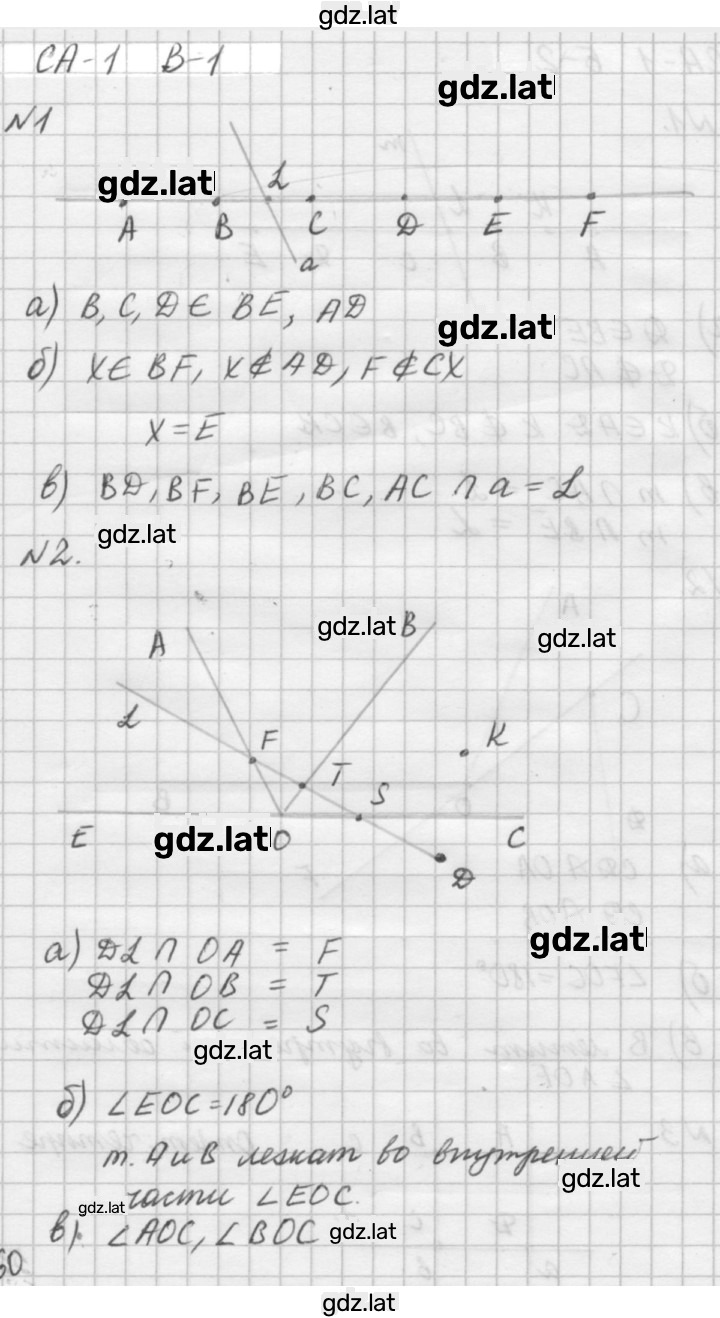 gdz.lat
СА-1 В-1
gdz.lat
N1
gdz.lat L
A B C D E F
a
а) B, C, D ∈ BE, AD
gdz.lat
б) X ∈ BF, X ∉ AD, F ∉ CX
X = E
в) BD, BF, BE, BC, AC ∩ a = L
gdz.lat
N2.
gdz.lat B
A gdz.lat
L
F K
T
S
E gdz.lat O C
D
gdz.lat
а) DL ∩ OA = F
DL ∩ OB = T
DL ∩ OC = S
gdz.lat
б) ∠EOC = 180°
т. А и В лежат во внутренней
gdz.lat
части ∠EOC.
gdz.lat
в). ∠AOC, ∠BOC gdz.lat
gdz.lat